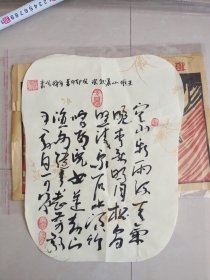 空山新雨後天氣
晚來秋明月松間
照清泉石上流竹
喧歸浣女蓮動下
漁舟隨意春芳歇
王孫自可留
王維山居秋暝